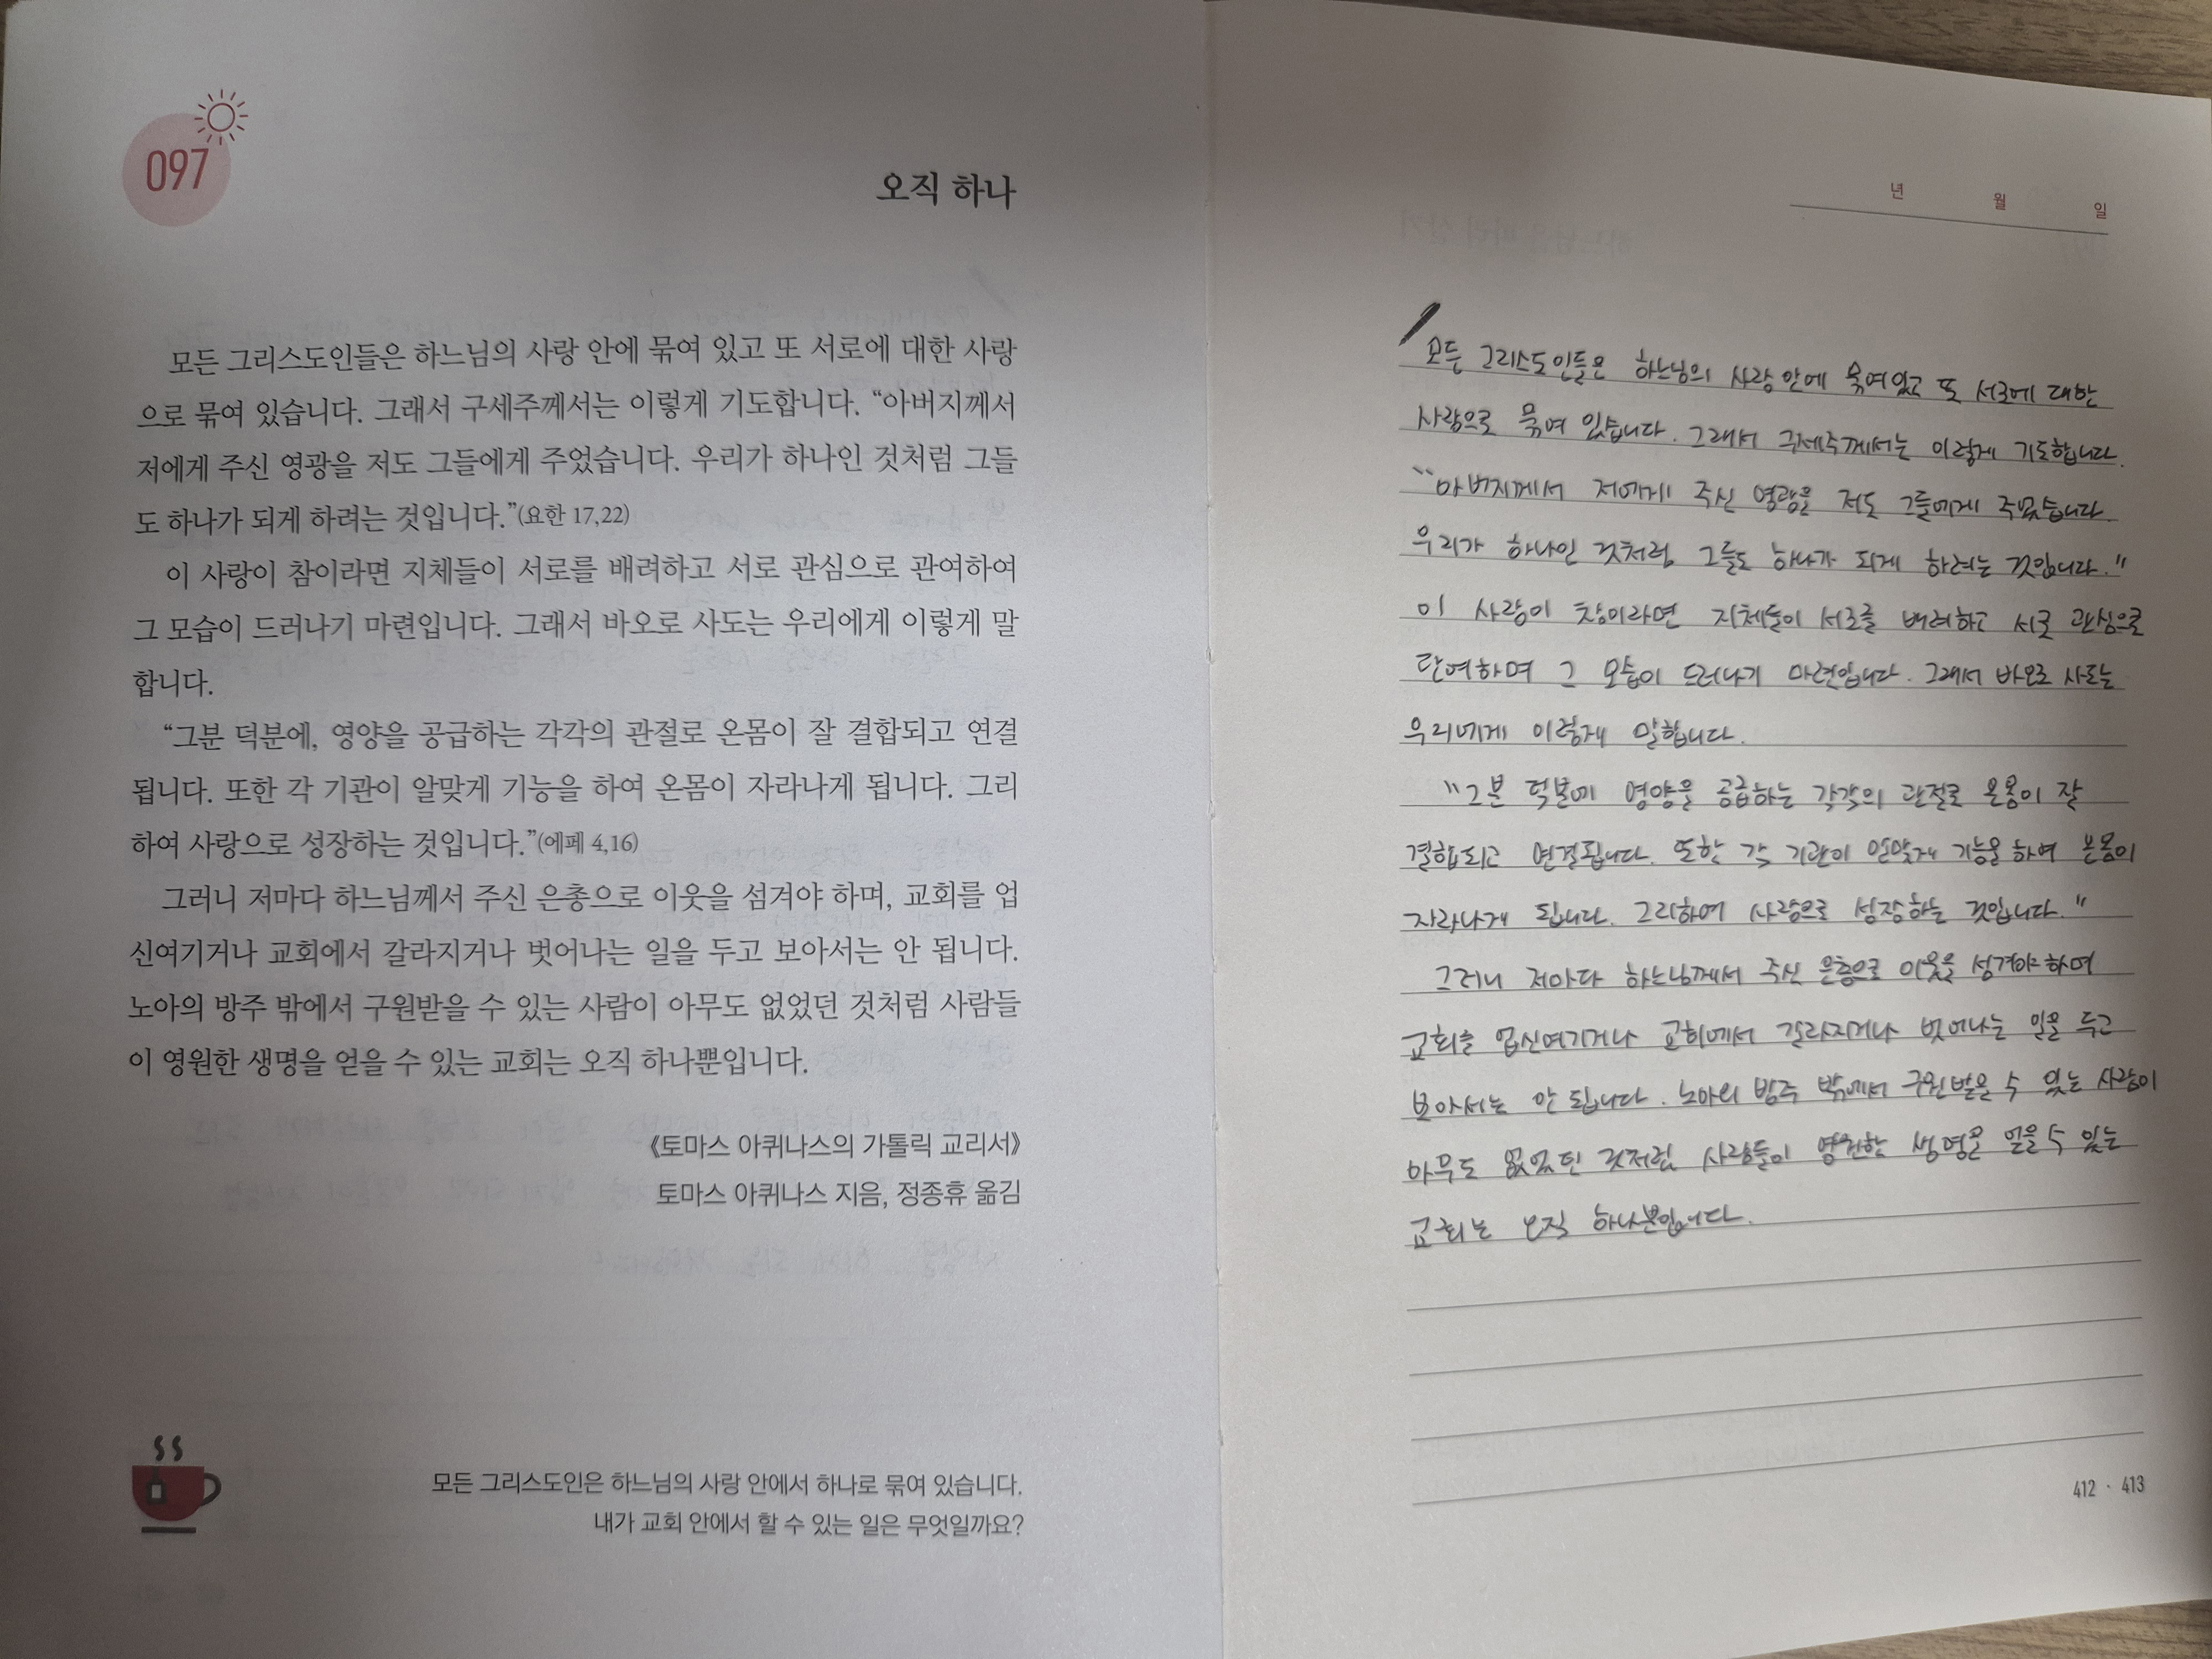 097
오직 하나
모든 그리스도인들은 하느님의 사랑 안에 묶여 있고 또 서로에 대한 사랑
으로 묶여 있습니다. 그래서 구세주께서는 이렇게 기도합니다. “아버지께서
저에게 주신 영광을 저도 그들에게 주었습니다. 우리가 하나인 것처럼 그들
도 하나가 되게 하려는 것입니다.”(요한 17,22)
이 사랑이 참이라면 지체들이 서로를 배려하고 서로 관심으로 관여하여
그 모습이 드러나기 마련입니다. 그래서 바오로 사도는 우리에게 이렇게 말
합니다.
“그분 덕분에, 영양을 공급하는 각각의 관절로 온몸이 잘 결합되고 연결
됩니다. 또한 각 기관이 알맞게 기능을 하여 온몸이 자라나게 됩니다. 그리
하여 사랑으로 성장하는 것입니다.”(에페 4,16)
그러니 저마다 하느님께서 주신 은총으로 이웃을 섬겨야 하며, 교회를 업
신여기거나 교회에서 갈라지거나 벗어나는 일을 두고 보아서는 안 됩니다.
노아의 방주 밖에서 구원받을 수 있는 사람이 아무도 없었던 것처럼 사람들
이 영원한 생명을 얻을 수 있는 교회는 오직 하나뿐입니다.
《토마스 아퀴나스의 가톨릭 교리서》
토마스 아퀴나스 지음, 정종휴 옮김
모든 그리스도인은 하느님의 사랑 안에서 하나로 묶여 있습니다.
내가 교회 안에서 할 수 있는 일은 무엇일까요?
년 월 일
모든 그리스도인들은 하느님의 사랑 안에 묶여있고 또 서로에 대한
사랑으로 묶여 있습니다. 그래서 구세주께서는 이렇게 기도합니다.
“아버지께서 저에게 주신 영광을 저도 그들에게 주었습니다.
우리가 하나인 것처럼 그들도 하나가 되게 하려는 것입니다.”
이 사랑이 참이라면 지체들이 서로를 배려하고 서로 관심으로
관여하며 그 모습이 드러나기 마련입니다. 그래서 바오로 사도는
우리에게 이렇게 말합니다.
“그분 덕분에 영양을 공급하는 각각의 관절로 온몸이 잘
결합되고 연결됩니다. 또한 각 기관이 알맞게 기능을 하여 온몸이
자라나게 됩니다. 그리하여 사랑으로 성장하는 것입니다.”
그러니 저마다 하느님께서 주신 은총으로 이웃을 섬겨야 하며
교회를 업신여기거나 교회에서 갈라지거나 벗어나는 일을 두고
보아서는 안 됩니다. 노아의 방주 밖에서 구원받을 수 있는 사람이
아무도 없었던 것처럼 사람들이 영원한 생명을 얻을 수 있는
교회는 오직 하나뿐입니다.
412 · 413